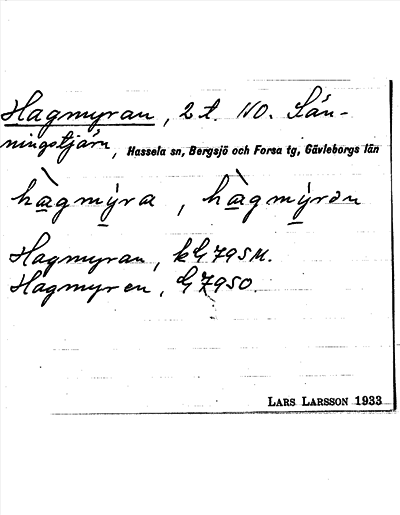 Hagmyran, 2 t. NO. Sän-
ningstjärn, Hassela sn, Bergsjö och Forsa tg, Gävleborgs län
hàgmýra, hàgmýrən
Hagmyran, kG 79 S M.
Hagmyren, G 79 SO.
LARS LARSSON 1933